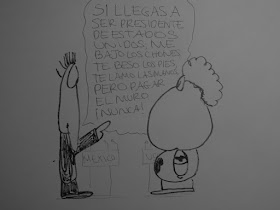 SI LLEGAS A
SER PRESIDENTE
DE ESTADOS
UNIDOS, ME
BAJO LOS CHONES,
TE BESO LOS PIES,
TE LAMO LAS MANOS,
PERO PAGAR
EL MURO
¡NUNCA!
MEXICO
U